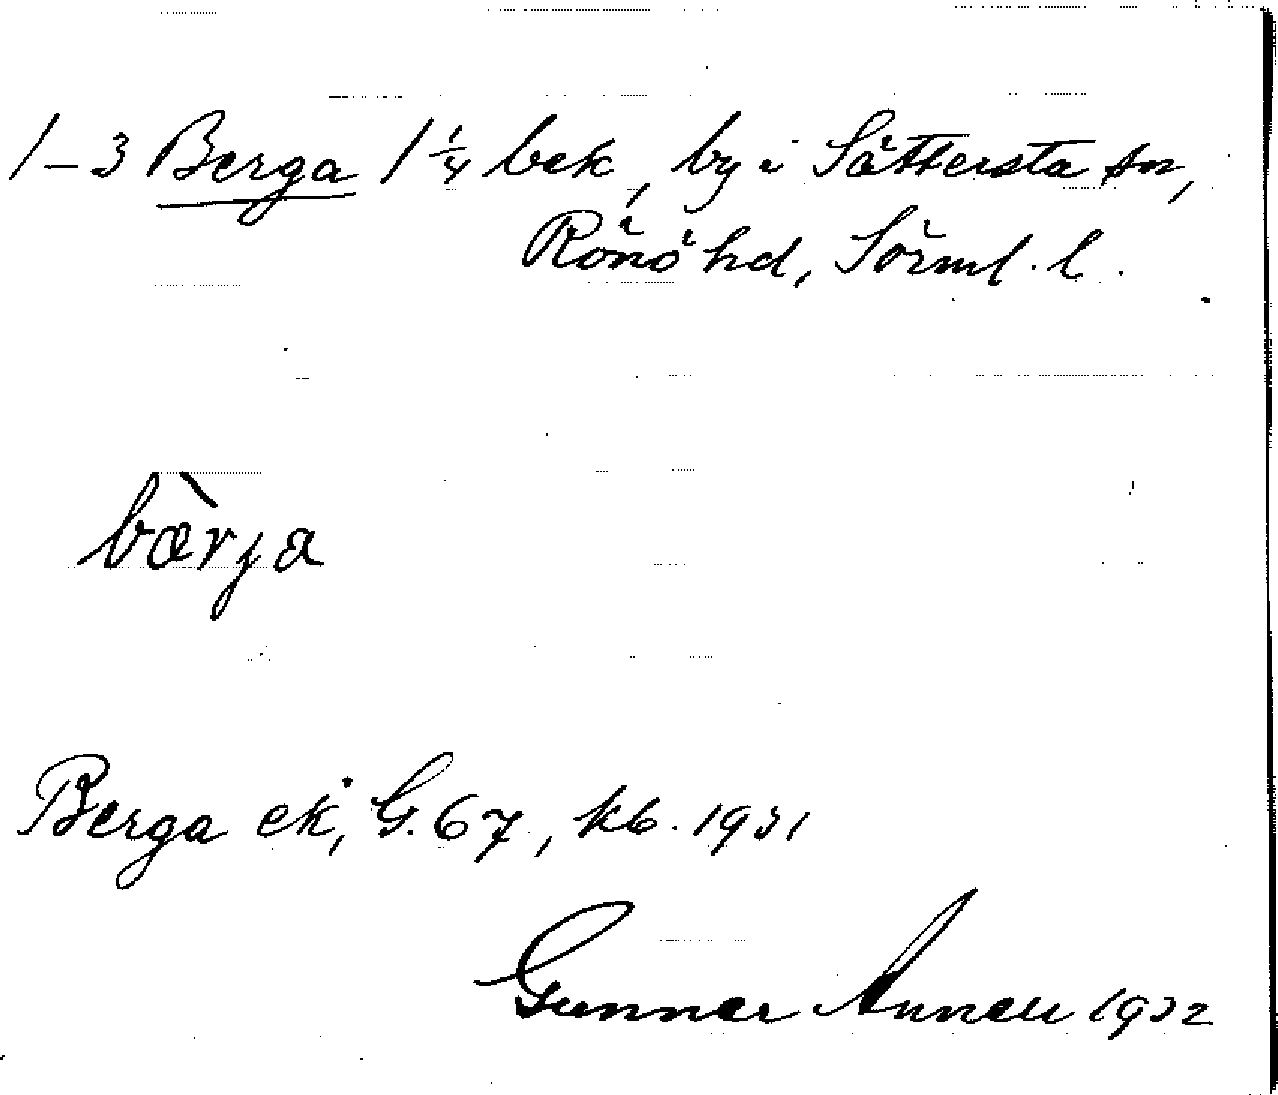 1–3 Berga 1 1/4 bek, by i Sättersta sn,
Rönö hd, Sörml. l.
bæ̀rja
Berga ek, G. 67, kb. 1931
Gunnar Annell 1932